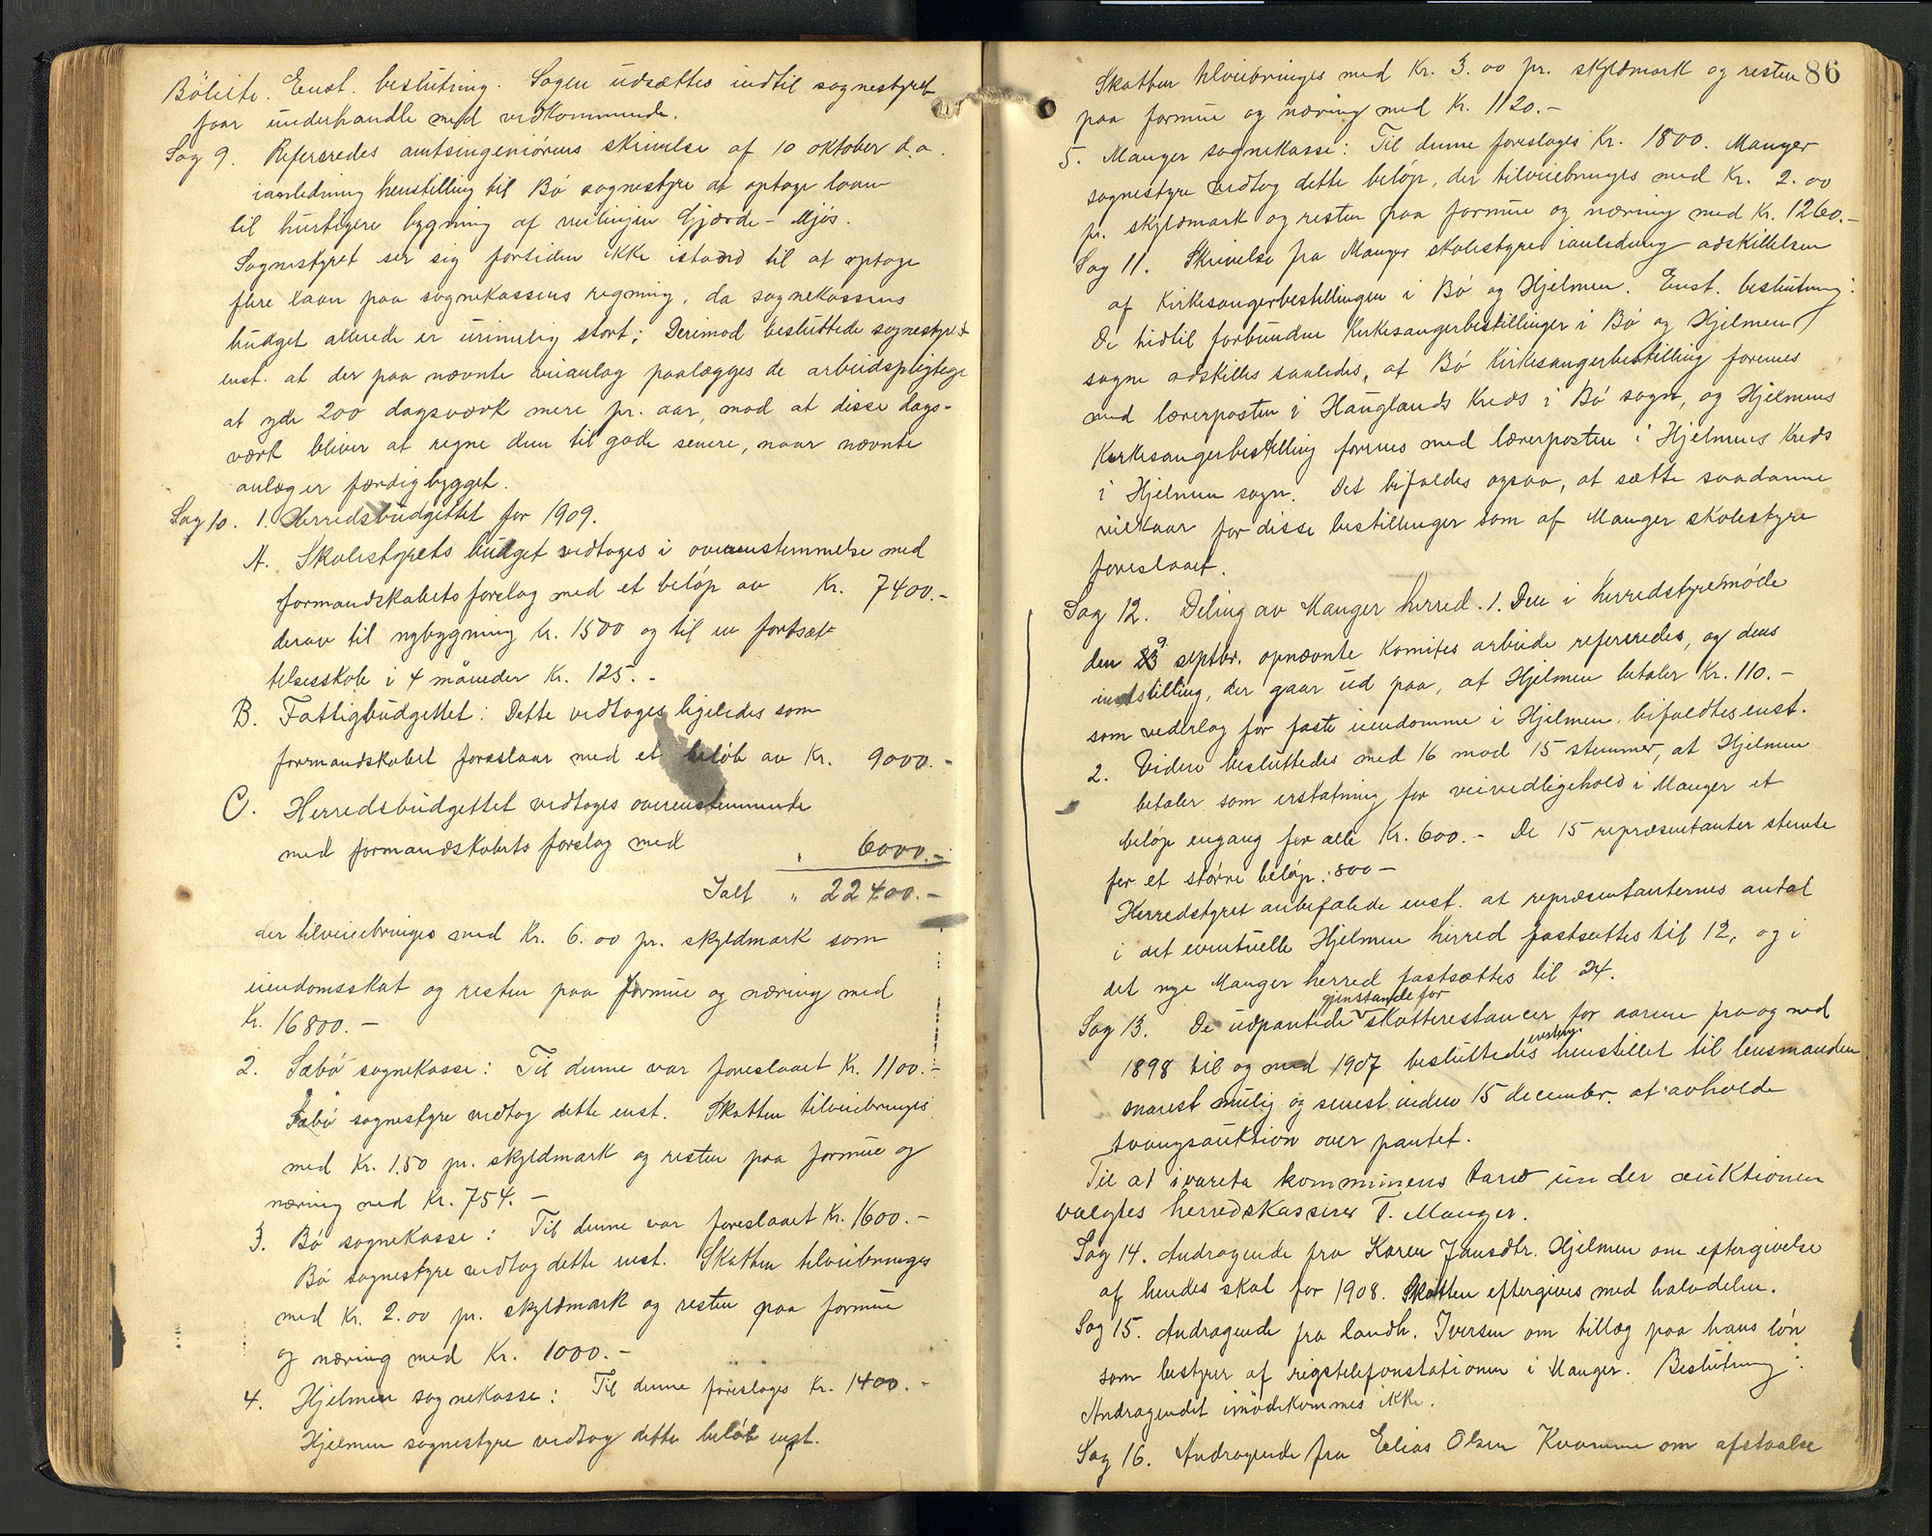 Böleite. Enst. beslutning. Sagen udsættes indtil sognestyret
faar underhandle med vedkommende.
Sag 9. Refereredes amtsingeniörens skrivelse af 10 oktober d.a.
ianledning henstilling til Bö sognestyre at optage laan
til hurtigere bygning af veilinjen Gjærde - Mjös.
Sognestyret ser sig fortiden ikke istand til at optage
flere laan paa sognekassens regning, da sognekassens
budget allerede er urimelig stort; Derimod besluttede sognestyret
enst. at der paa nævnte veianlæg paalægges de arbeidspligtige
at yde 200 dagsværk mere pr. aar, mod at disse dags-
værk bliver at regne dem til gode senere, naar nævnte
anlæg er færdigbygget.
Sag 10. 1. Herredsbudgettet for 1909.
A. Skolestyrets budget vedtages i overensstemmelse med
formandskabets forslag med et belöp av Kr. 7400.-
derav til nybygning Kr. 1500 og til en fortsæt-
telsesskole i 4 måneder Kr. 125.-
B. Fattigbudgettet: Dette vedtages ligeledes som
formandskabet foreslaar med et belöb av Kr. 9000.-
C. Herredsbudgettet vedtages overenstemmende
med formandskabets forslag med " 6000.-
Ialt " 22400.-
der tilveiebringes med Kr. 6.00 pr. skyldmark som
eiendomsskat og resten paa formue og næring med
Kr. 16800.-
2. Sæbö sognekasse: Til denne var foreslaaet Kr. 1100.-
Sæbö sognestyre vedtog dette enst. Skatten tilveiebringes
med Kr. 1.50 pr. skyldmark og resten paa formue og
næring med Kr. 754.-
3. Bö sognekasse: Til denne var foreslaaet Kr. 1600.-
Bö sognestyre vedtog dette enst. Skatten tilveiebringes
med Kr. 2.00 pr. skyldmark og resten paa formue
og næring med Kr. 1000.-
4. Hjelmen sognekasse: Til denne foreslages Kr. 1400.-
Hjelmen sognestyre vedtog dette belöb enst.
86
Skatten tilveiebringes med Kr. 3.00 pr. skyldmark og resten
paa formue og næring med Kr. 1120.-
5. Manger sognekasse: Til denne foreslages Kr. 1800. Manger
sognestyre vedtog dette belöp, der tilveiebringes med Kr. 2.00
pr. skyldmark og resten paa formue og næring med Kr. 1260.-
Sag 11. Skrivelse fra Manger skolestyre ianledning adskillelsen
af Kirkesangerbestillingen i Bö og Hjelmen. Enst. beslutning:
De hidtil forbundne Kirkesangerbestillinger i Bö og Hjelmen
sogne adskilles saaledes, at Bö Kirkesangerbestilling forenes
med lærerposten i Hauglands Kreds i Bö sogn, og Hjelmens
Kirkesangerbestilling forenes med lærerposten i Hjelmens Kreds
i Hjelmen sogn. Det bifaldes ogsaa, at sætte saadanne
vilkaar for disse bestillinger som af Manger skolestyre
foreslaaet.
Sag 12. Deling av Manger herred. 1. Den i herredstyremöde
den 9 septbr. opnævnte Komites arbeide refereredes, og dens
indstilling, der gaar ud paa, at Hjelmen betaler Kr. 110.-
som vederlag for faste eiendomme i Hjelmen, bifaldtes enst.
2. Videre besluttedes med 16 mod 15 stemmer, at Hjelmen
betaler som erstatning for veivedligehold i Manger et
belöp engang for alle Kr. 600.- De 15 repræsentanter stemte
for et större belöp: 800-
Herredstyret anbefalede enst. at repræsentanternes antal
i det eventuelle Hjelmen herred fastsættes til 12, og i
det nye Manger herred fastsættes til 24.
Sag 13. De udpantede gjenstande for skatterestancer for aarene fra og med
1898 til og med 1907 besluttedes henstillet til lensmanden
snarest mulig og senest inden 15 december at avholde
tvangsauktion over pantet.
Til at ivareta kommunens tarv under auktionen
valgtes herredskasserer T. Manger.
Sag 14. Andragende fra Karen Jansdtr. Hjelmen om eftergivelse
af hendes skat for 1908. Skatten eftergives med halvdelen.
Sag 15. Andragende fra landh. Iversen om tillæg paa hans lön
som bestyrer af rigstelefonstationen i Manger. Beslutning:
Andragendet imödekommes ikke.
Sag 16. Andragende fra Elias Olsen Kvamme om afstaalse